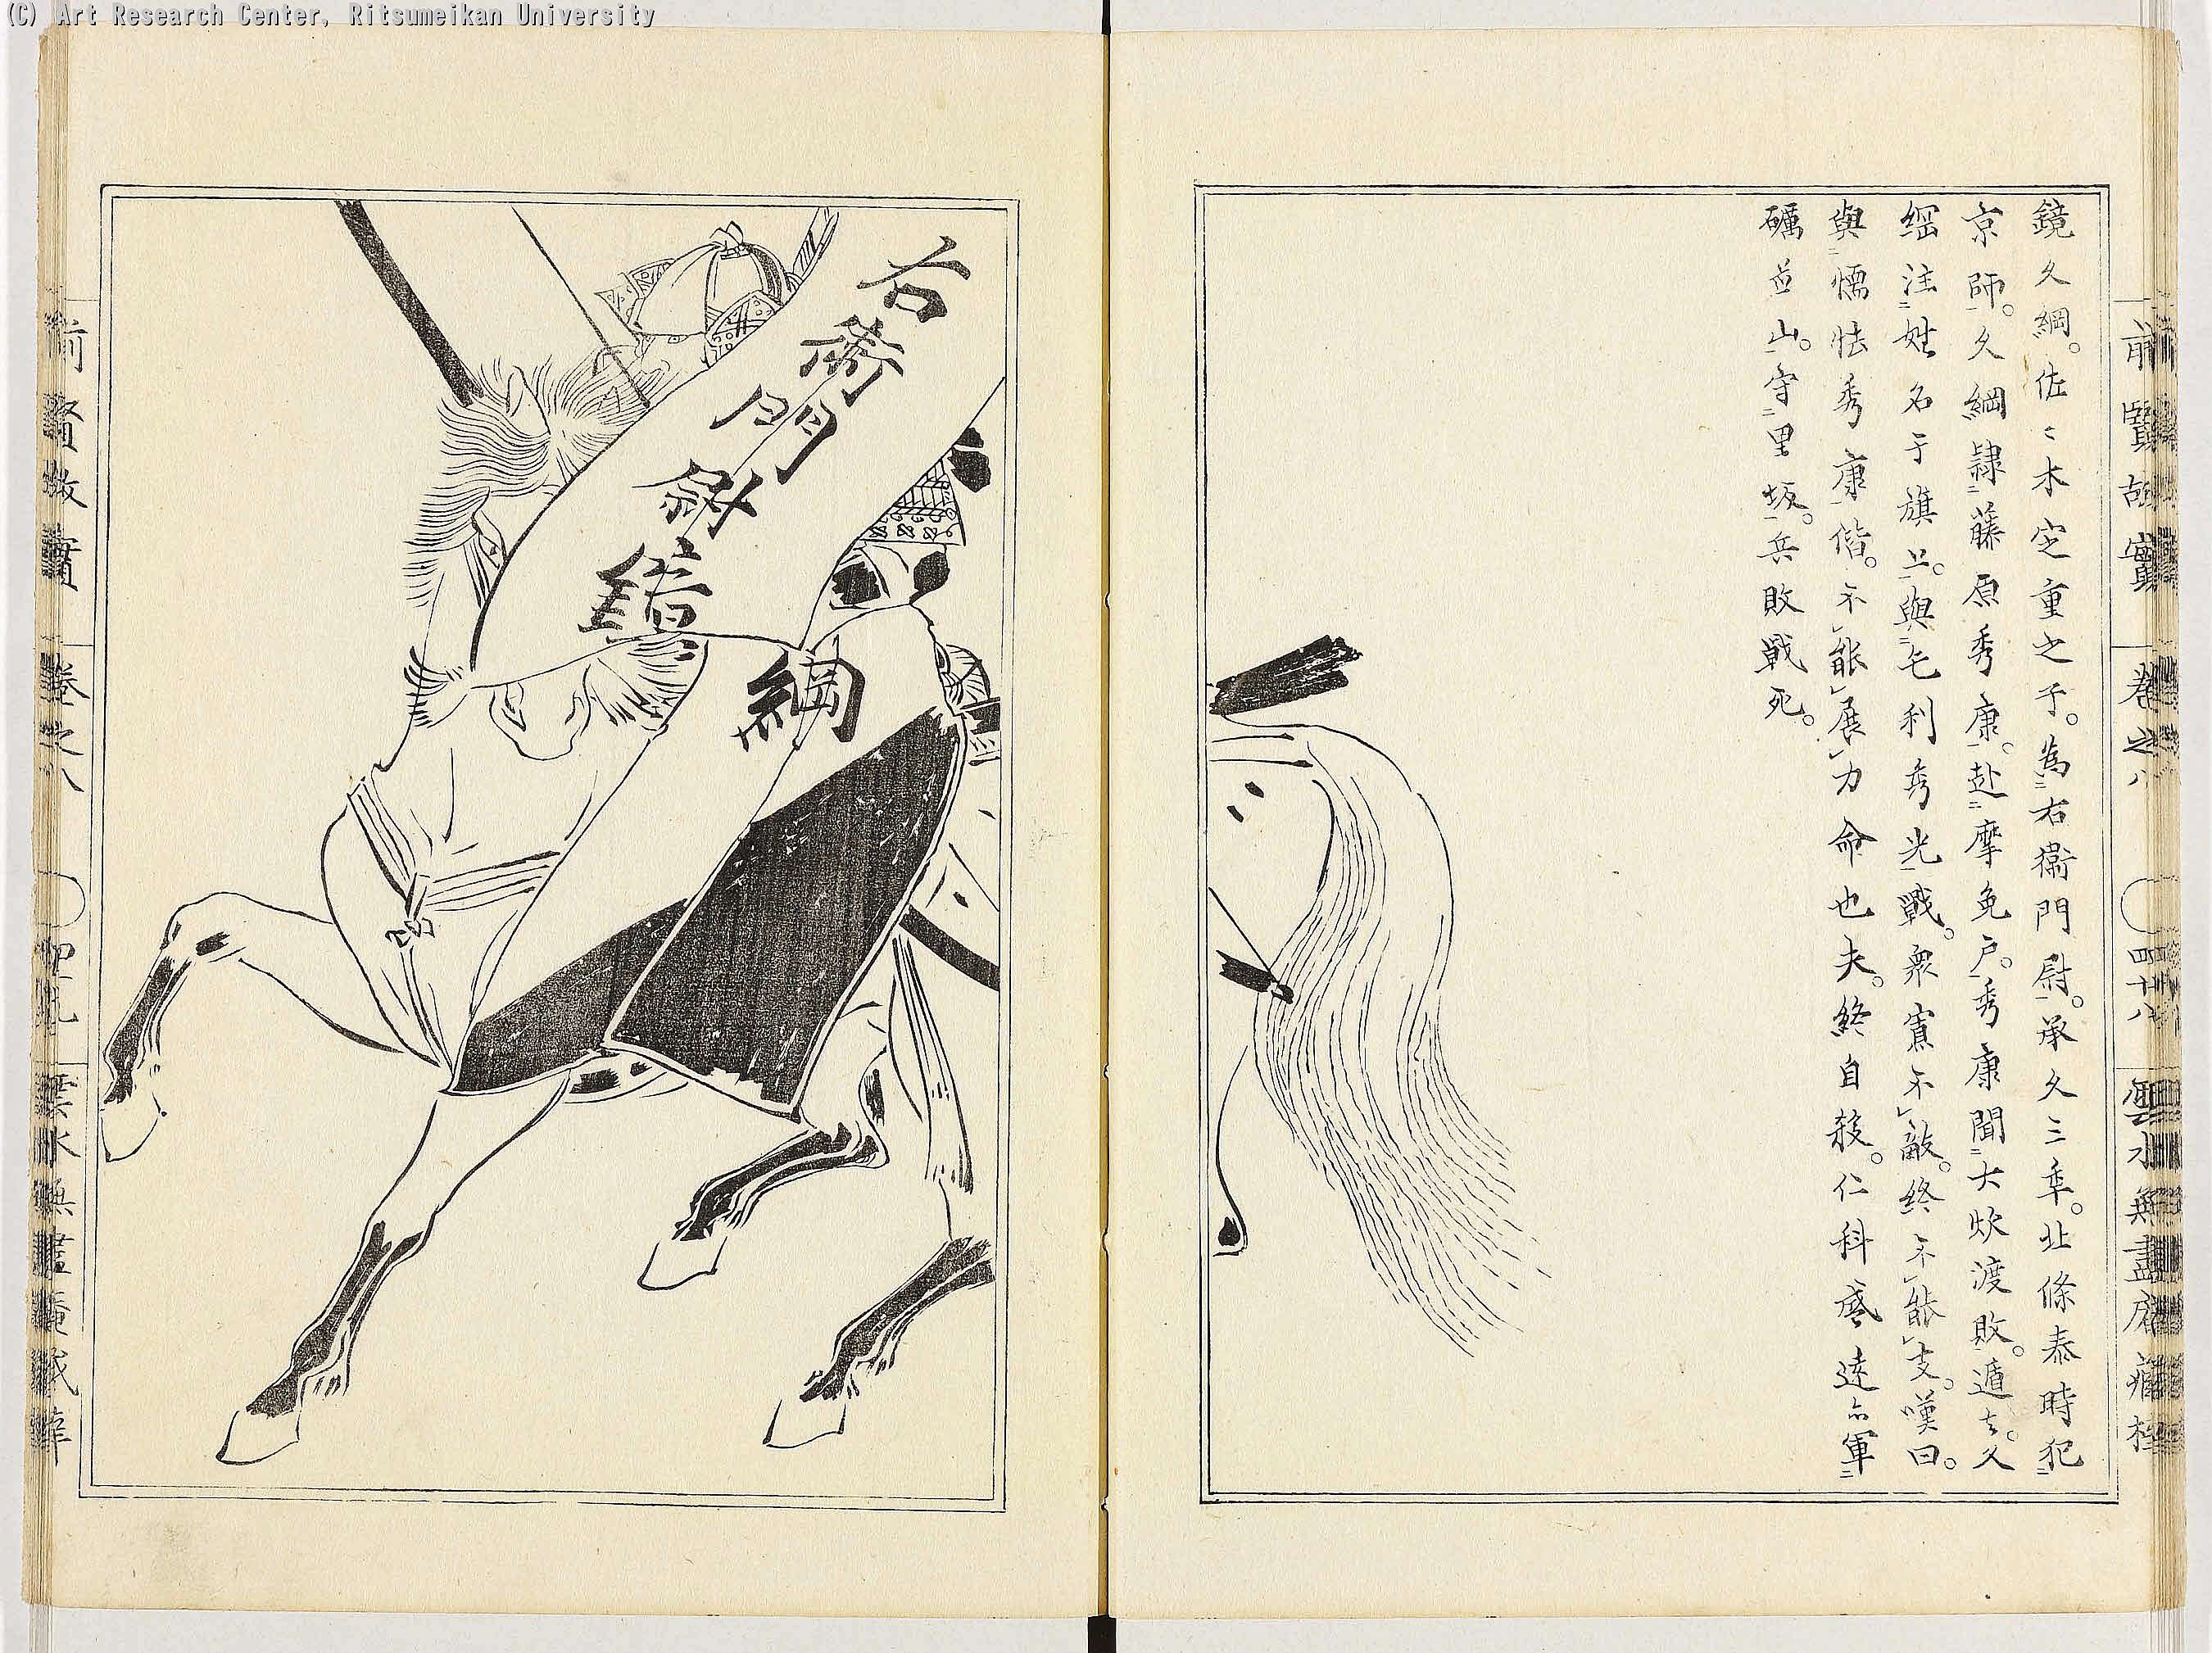 (C) Art Research Center, Ritsumeikan University
前賢故實 卷之八 四十八 雲水無盡庵
鏡久綱。佐々木定重之子。為右衞門尉。承久三年。北條泰時犯
京師。久綱隷藤原秀康。赴摩免戶。秀康聞大炊渡敗。遁去。久
綱注姓名于旗上。與毛利秀光戰。衆寡不敵。終不能支。嘆曰。
與懦怯秀康偕。不能展力命也夫。終自殺。仁科盛遠亦軍
礪並山。守里坂。兵敗戰死。
右衞門尉鏡
綱
前賢故實 卷之八 雲水無盡庵藏